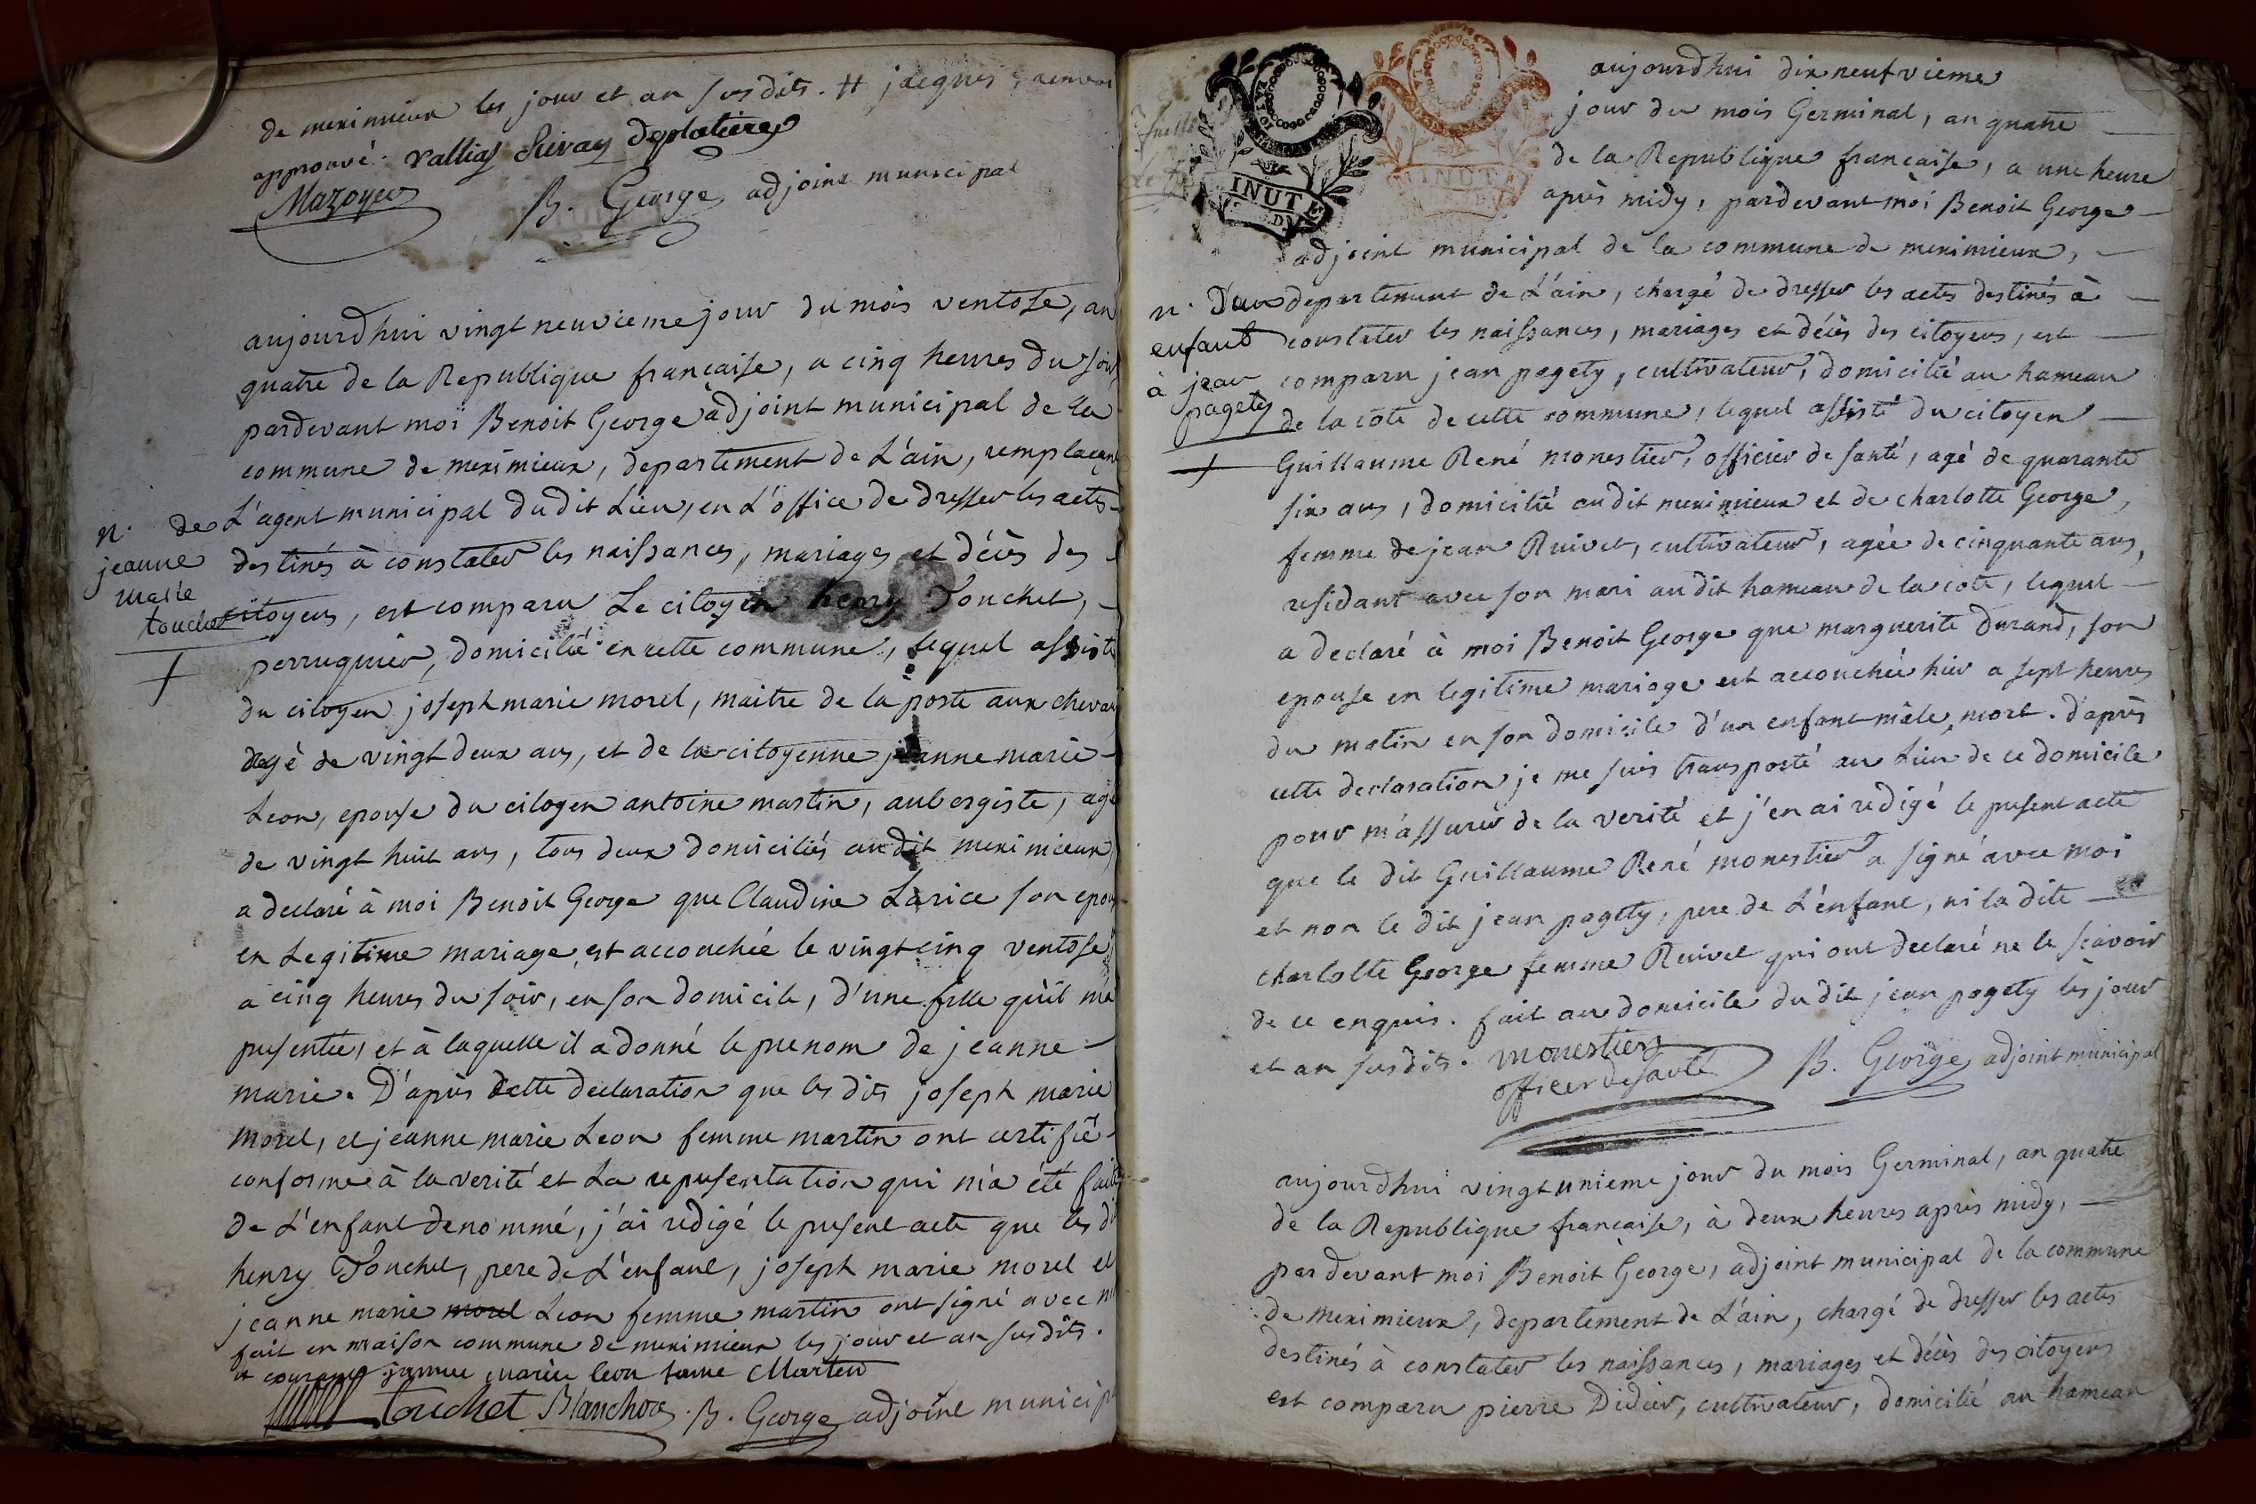 de meximieux les jour et an susdits. # jacques, renvoi
approuvé. vallias Sievay Deplatieres
Mazoyer B. George adjoint municipal
aujourdhui vingt neuvieme jour du mois ventose, an
quatre de la Republique française, a cinq heures du soir,
pardevant moi Benoit George adjoint municipal de la
commune de meximieux, departement de L'ain, remplaçant
L'agent municipal dudit Lieu, en L'office de dresser les actes
destinés à constater les naissances, mariages et décès des
citoyens, est comparu Le citoyen henry Touchet,
perruquier, domicilié en cette commune, lequel assisté
du citoyen joseph marie morel, maitre de la poste aux chevaux
agé de vingt deux ans, et de la citoyenne jeanne marie
Leon, epouse du citoyen antoine martin, aubergiste, agé
de vingt huit ans, tous deux domiciliés audit meximieux,
a declaré à moi Benoit George que Claudine Larice son epouse
en Legitime mariage, est accouchée le vingt cinq ventose
a cinq heures du soir, en son domicile, d'une fille qu'il m'a
presentée, et à laquelle il a donné le prenom de jeanne
marie. D'après cette declaration que les dits joseph marie
morel, et jeanne marie Leon femme martin ont certifié
conforme à la verité et La representation qui m'a été faite
de L'enfant denommé, j'ai redigé le present acte que les dt
henry Touchet, pere de L'enfant, joseph marie morel et
jeanne marie morel Leon femme martin ont signé avec m
fait en maison commune de meximieux les jour et an susdits.
jannee marie leon fame Marten
Touchet Blanchon B. George adjoint municip
n. de
jeanne
marie
touchet
aujourdhui dix neufvieme
jour du mois Germinal, an quatre
de la Republique francaise, a une heure
après midy, pardevant moi Benoit George
adjoint municipal de la commune de meximieux,
departement de L'ain, chargé de dresser les actes destinés à
constater les naissances, mariages et décès des citoyens, est
comparu jean pagety, cultivateur, domicilié au hameau
de la cote de cette commune, lequel assisté du citoyen
Guillaume René monestier, officier de santé, agé de quarante
six ans, domicilié audit meximieux et de charlotte George,
femme de jean Ruivet, cultivateur, agée de cinquante ans,
residant avec son mari audit hameau de la cote, lequel
a declaré à moi Benoit George que marguerite Durand, son
epouse en legitime mariage est accouchée hier a sept heures
du matin en son domicile d'un enfant mâle mort. d'après
cette declaration je me suis transporté au Lieu de ce domicile
pour m'assurer de la verité et j'en ai redigé le present acte
que le dit Guillaume René monestier a signé avec moi
et non le dit jean pagety, pere de L'enfant, ni la dite
charlotte George femme Ruivet qui ont declaré ne le sçavoir
de ce enquis. fait au domicile du dit jean pagety les jour
et an susdits. monestier B. George adjoint municipal
officier de santé
n. D'un
enfant
à jean
pagety
INUTE
MINUTE
aujourdhui vingt unieme jour du mois Germinal, an quatre
de la Republique francaise, à deux heures après midy,
pardevant moi Benoit George, adjoint municipal de la commune
de meximieux, departement de L'ain, chargé de dresser les actes
destinés à constater les naissances, mariages et décès des citoyens
est comparu pierre Didier, cultivateur, domicilié au hameau